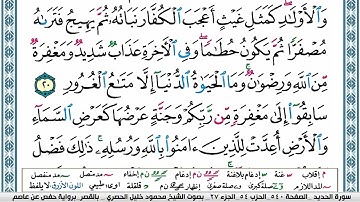 وَٱلْأَوْلَٰدِ ۖ كَمَثَلِ غَيْثٍ أَعْجَبَ ٱلْكُفَّارَ نَبَاتُهُۥ ثُمَّ يَهِيجُ فَتَرَىٰهُ
مُصْفَرًّا ثُمَّ يَكُونُ حُطَٰمًا ۖ وَفِى ٱلْءَاخِرَةِ عَذَابٌ شَدِيدٌ وَمَغْفِرَةٌ
مِّنَ ٱللَّهِ وَرِضْوَٰنٌ ۚ وَمَا ٱلْحَيَوٰةُ ٱلدُّنْيَآ إِلَّا مَتَٰعُ ٱلْغُرُورِ ٢٠
سَابِقُوٓا۟ إِلَىٰ مَغْفِرَةٍ مِّن رَّبِّكُمْ وَجَنَّةٍ عَرْضُهَا كَعَرْضِ ٱلسَّمَآءِ
وَٱلْأَرْضِ أُعِدَّتْ لِلَّذِينَ ءَامَنُوا۟ بِٱللَّهِ وَرُسُلِهِۦ ۚ ذَٰلِكَ فَضْلُ
سورة الحديد الصفحة ٥٤٠ الحزب ٥٤ الجزء ٢٧ بصوت الشيخ محمود خليل الحصري بالقصر برواية حفص عن عاصم